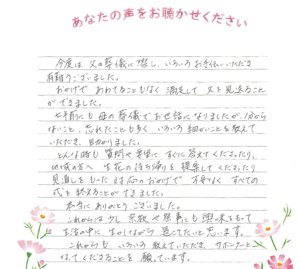 あなたの声をお聴かせください
今度は 父の葬儀に際し、いろいろお手伝いいただき
有難うございました。
おかげで あわてることもなく 満足して 父を見送ること
ができました。
七年前にも 母の葬儀でお世話になりましたが、分から
ないこと、忘れたことも多く いろいろ細かいことを教えて
いただき、助かりました。
どんな時も 質問や要望に すぐに答えてくださったり、
地域の方へ 生花の持ち帰りを提案してくださったり
見直しをもった対応のおかげで 不安なく すべての
式を終えることができました。
本当にありがとうございました。
これからは少し 宗教や祭事にも興味をもって
生活の中に 生かしながら 過ごしたいと思います。
これからも いろいろ教えていただき、サポーターと
なってくださることを 願っています。